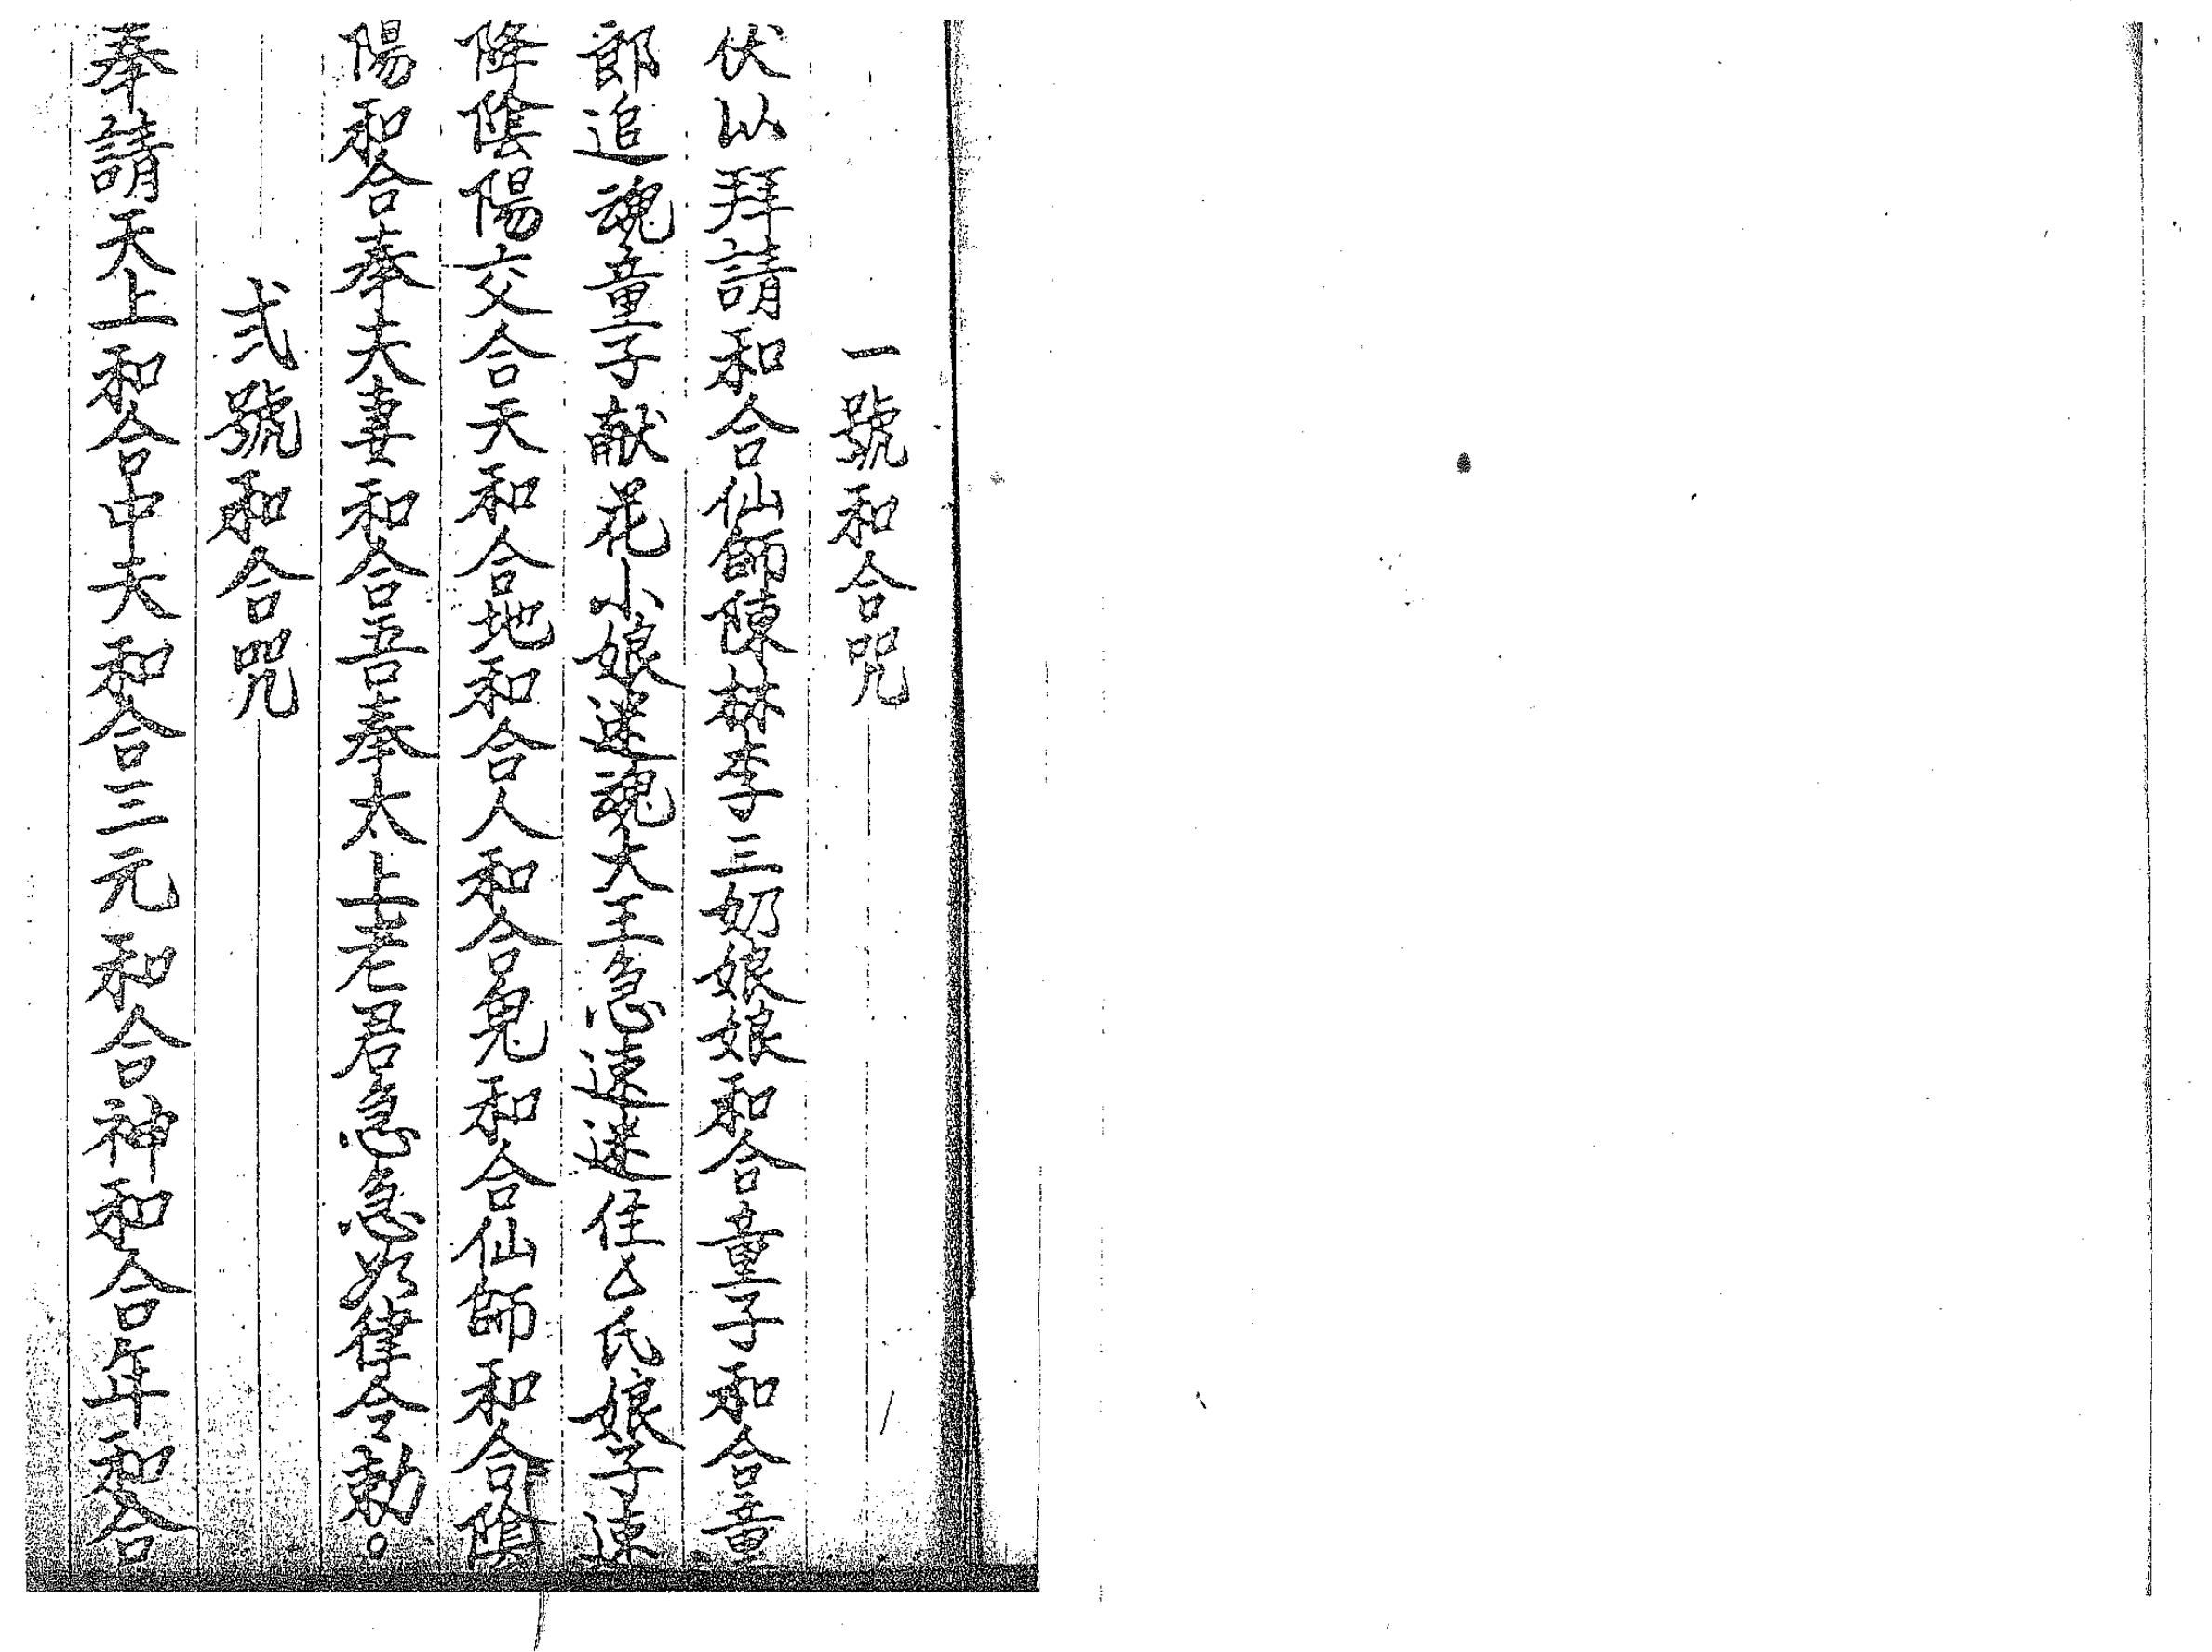 一號和合咒
伏以拜請和合仙師陳林李三奶娘娘和合童子和合童
郎追魂童子献花小娘迷魂大王急速迷住厶氏娘子速
降陰陽交合天和合地和合人和合鬼和合仙師和合陰
陽和合奉夫妻和合吾奉太上老君急急如律令勅。
弍號和合咒
奉請天上和合中夫和合三元和合神和合年和合